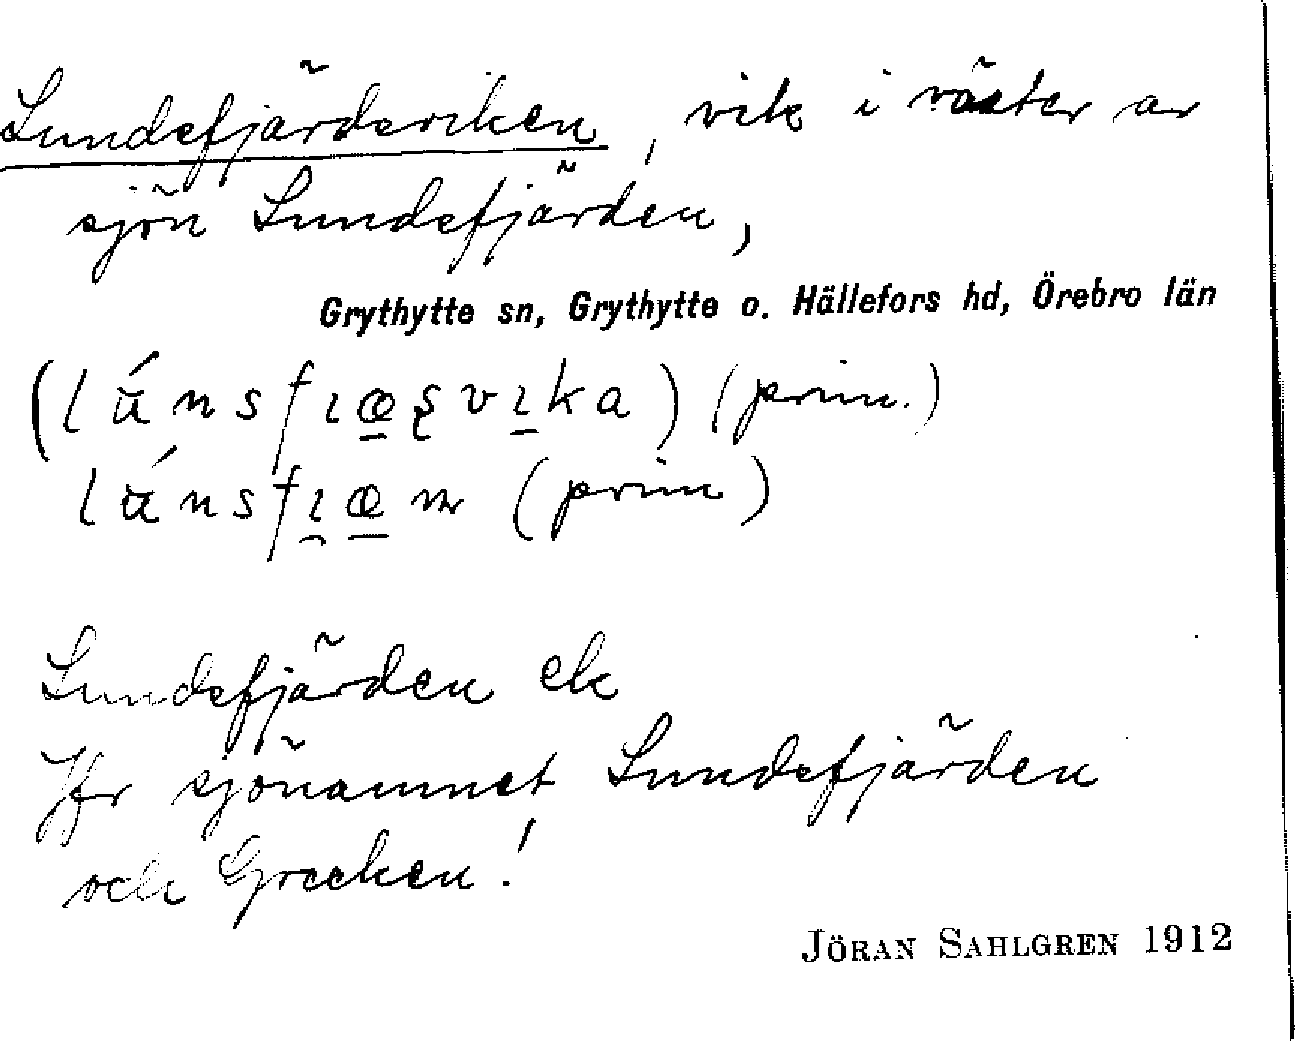 Lundsfjärdsviken, vik i väster av
sjön Lundsfjärden,
Grythytte sn, Grythytte o. Hällefors hd, Örebro län
(prim.)
(prim)
Lundsfjärden ek
Jfr sjönamnet Lundsfjärden
och Grecken!
JÖRAN SAHLGREN 1912